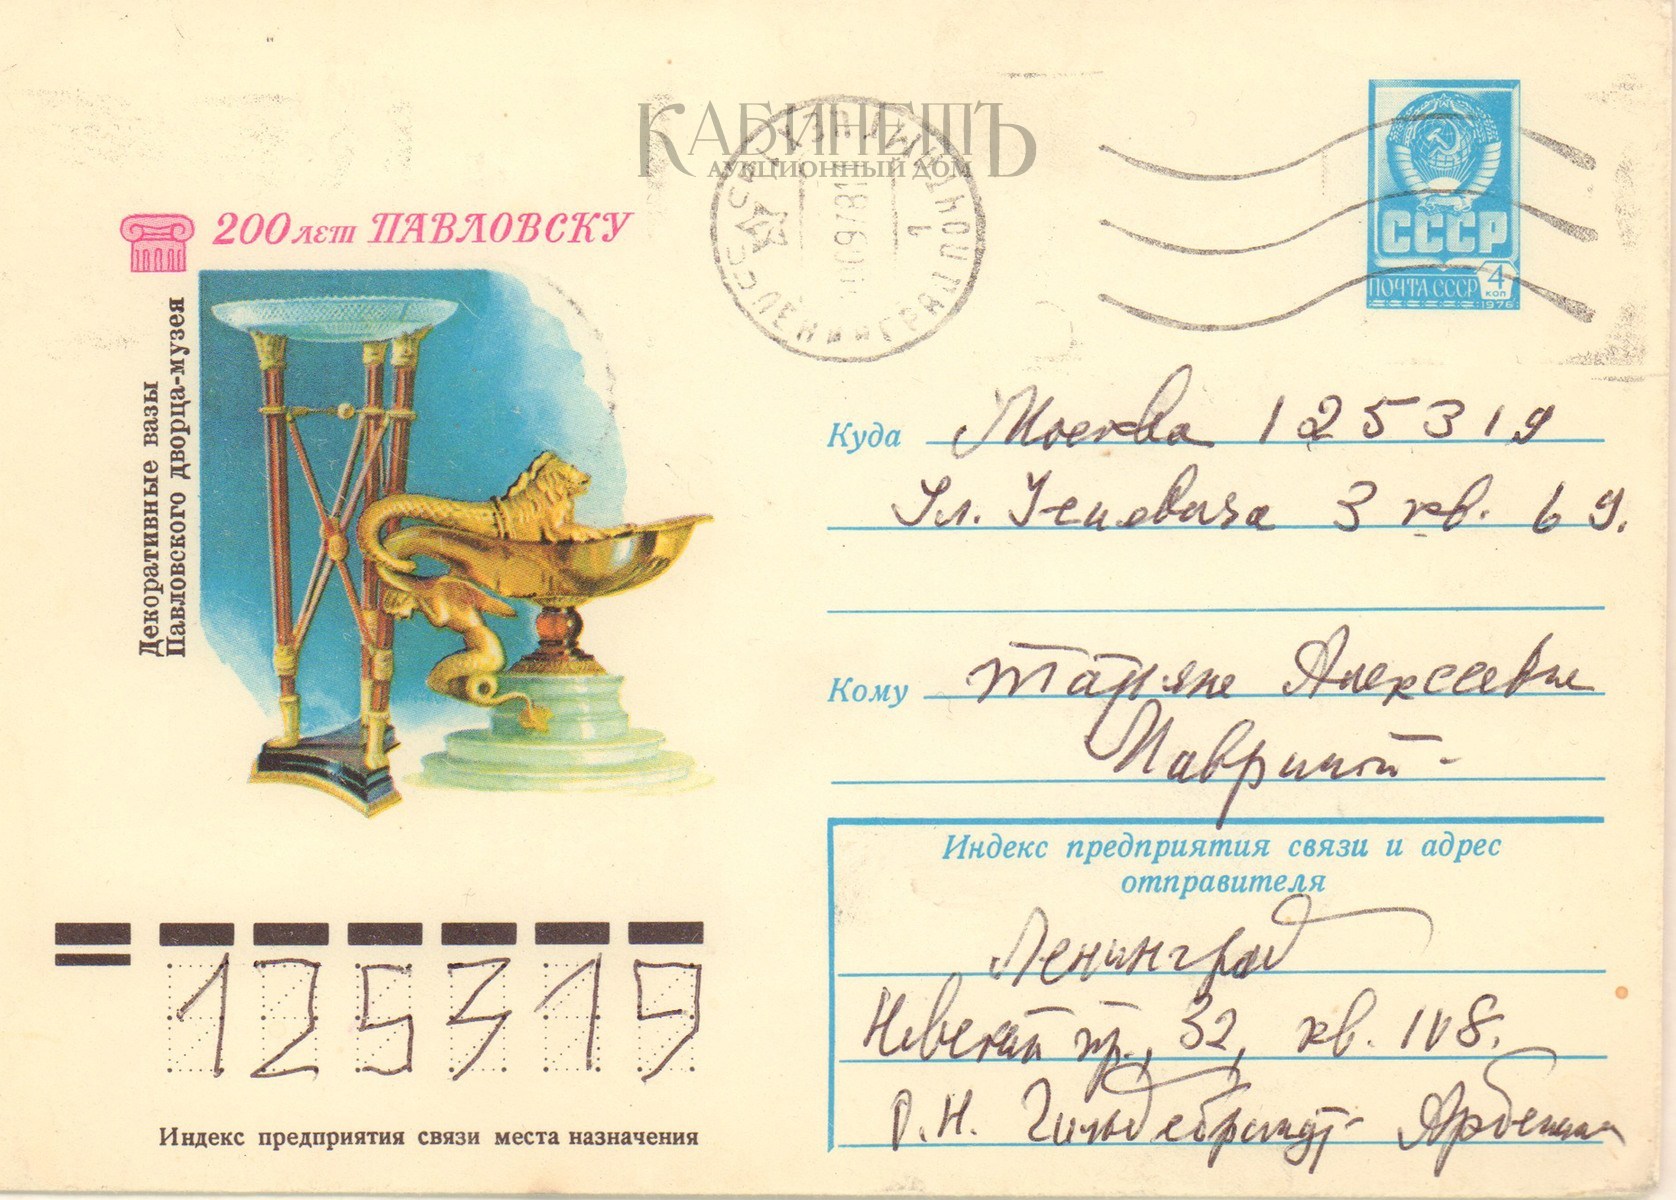 КАБИНЕТЪ
АУКЦИОННЫЙ ДОМ
200 лет ПАВЛОВСКУ
Декоративные вазы
Павловского дворца-музея
СССР
ЛЕНИНГРАД ПОЧТАМТ
1
СССР
ПОЧТА СССР
4
КОП
1976
Куда Москва 125319
Ул. Усиевича 3 кв. 69.
Кому Татьяне Алексеевне
Мавриной
Индекс предприятия связи и адрес
отправителя
Ленинград
Невский пр., 32, кв. 108.
О.Н. Гильдебрандт-Арбенина
125319
Индекс предприятия связи места назначения